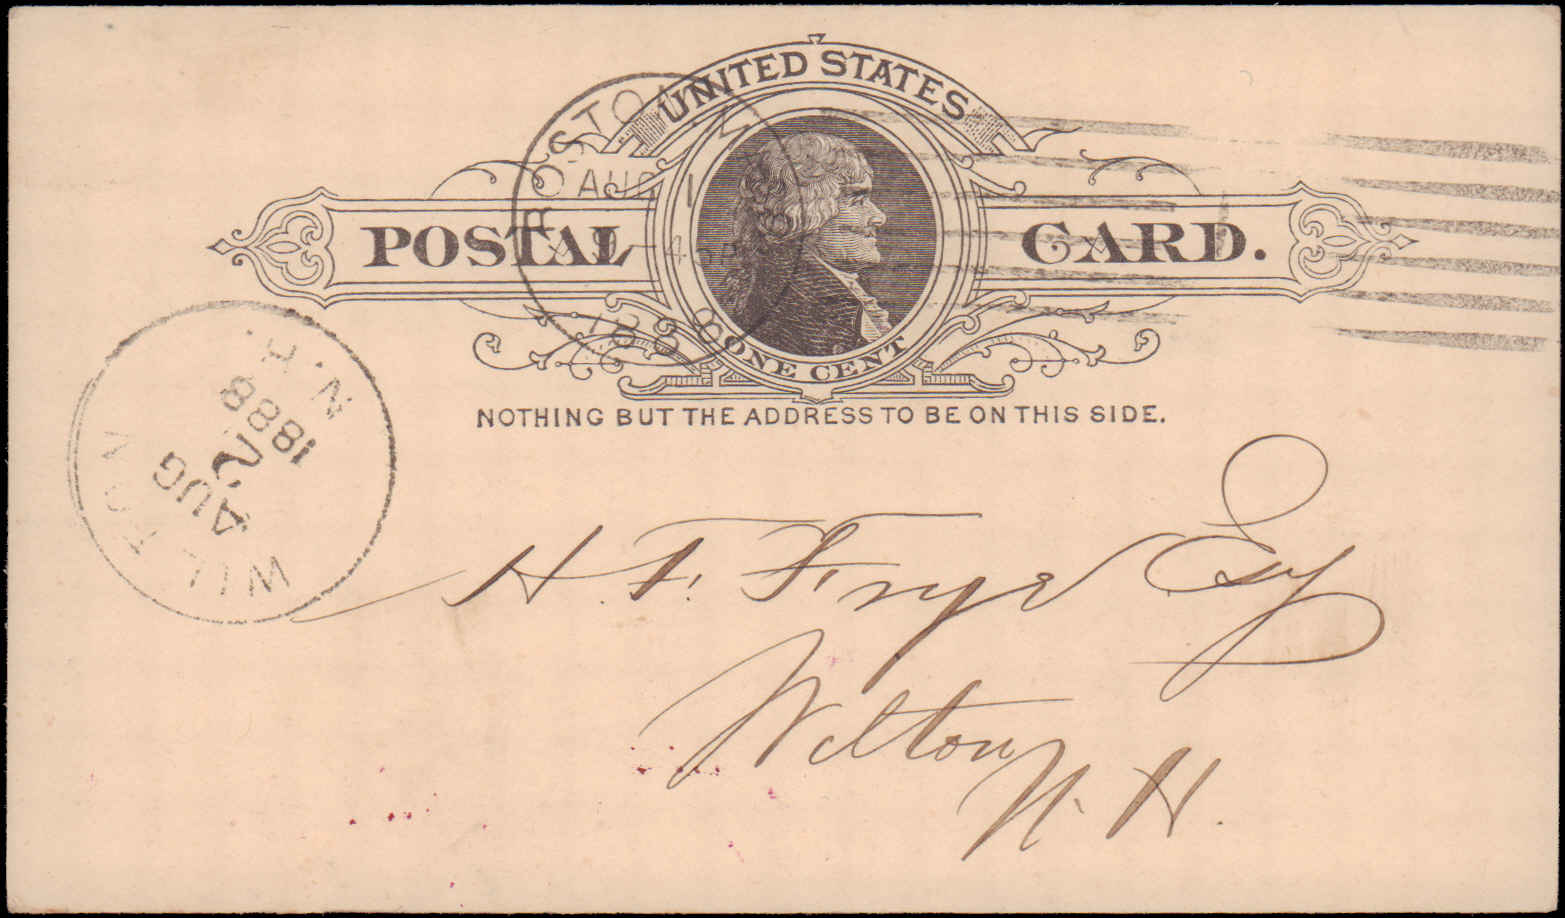 UNITED STATES
POSTAL CARD.
ONE CENT
NOTHING BUT THE ADDRESS TO BE ON THIS SIDE.
BOSTON M
AUG 1
4
188
WILTON N.H.
AUG
2
1888
H. F. Frye Esq
Wilton
N. H.